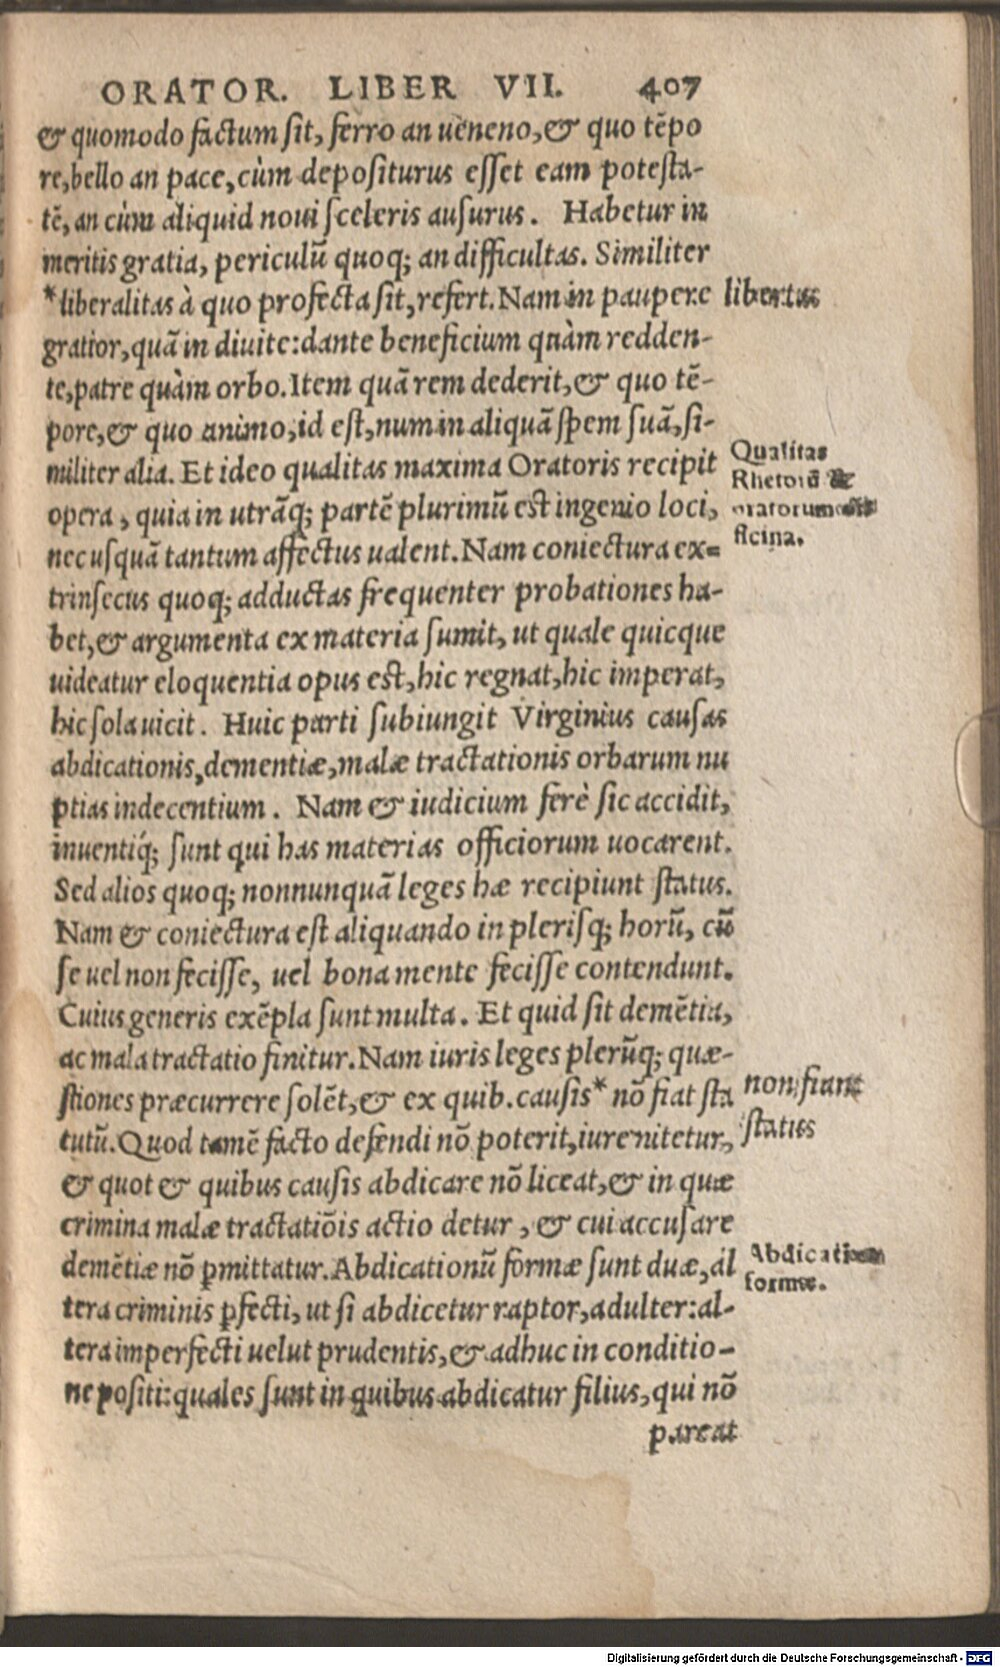 ORATOR. LIBER VII. 407
& quomodo factum sit, ferro an ueneno, & quo tẽpo
re, bello an pace, cùm depositurus esset eam potesta-
tẽ, an cùm aliquid noui sceleris ausurus. Habetur in
meritis gratia, periculũ quoq; an difficultas. Similiter
*liberalitas à quo profecta sit, refert. Nam in paupere
libertas
gratior, quã in diuite: dante beneficium quàm redden-
te, patre quàm orbo. Item quã rem dederit, & quo tẽ-
pore, & quo animo, id est, num in aliquã spem suã, si-
militer alia. Et ideo qualitas maxima Oratoris recipit
Qualitas
Rhetorũ &
oratorum of
ficina.
opera, quia in utrãq; partẽ plurimũ est ingenio loci,
nec usquã tantum affectus ualent. Nam coniectura ex=
trinsecus quoq; adductas frequenter probationes ha-
bet, & argumenta ex materia sumit, ut quale quicque
uideatur eloquentia opus est, hic regnat, hic imperat,
hic sola uicit. Huic parti subiungit Virginius causas
abdicationis, dementiæ, malæ tractationis orbarum nu
ptias indecentium. Nam & iudicium ferè sic accidit,
inuentiq́; sunt qui has materias officiorum uocarent.
Sed alios quoq; nonnunquã leges hæ recipiunt status.
Nam & coniectura est aliquando in plerisq; horũ, cũ
se uel non fecisse, uel bona mente fecisse contendunt.
Cuius generis exẽpla sunt multa. Et quid sit demẽtia,
ac mala tractatio finitur. Nam iuris leges plerũq; quæ-
stiones præcurrere solẽt, & ex quib. causis* nõ fiat sta
non fiant
status
tutũ. Quod tamẽ facto defendi nõ poterit, iure nitetur,
& quot & quibus causis abdicare nõ liceat, & in quæ
crimina malæ tractatiõis actio detur, & cui accusare
demẽtiæ nõ p̱mittatur. Abdicationũ formæ sunt duæ, al
Abdicationum
formæ.
tera criminis p̱fecti, ut si abdicetur raptor, adulter: al-
tera imperfecti uelut prudentis, & adhuc in conditio-
ne positi: quales sunt in quibus abdicatur filius, qui nõ
pareat
Digitalisierung gefördert durch die Deutsche Forschungsgemeinschaft - DFG